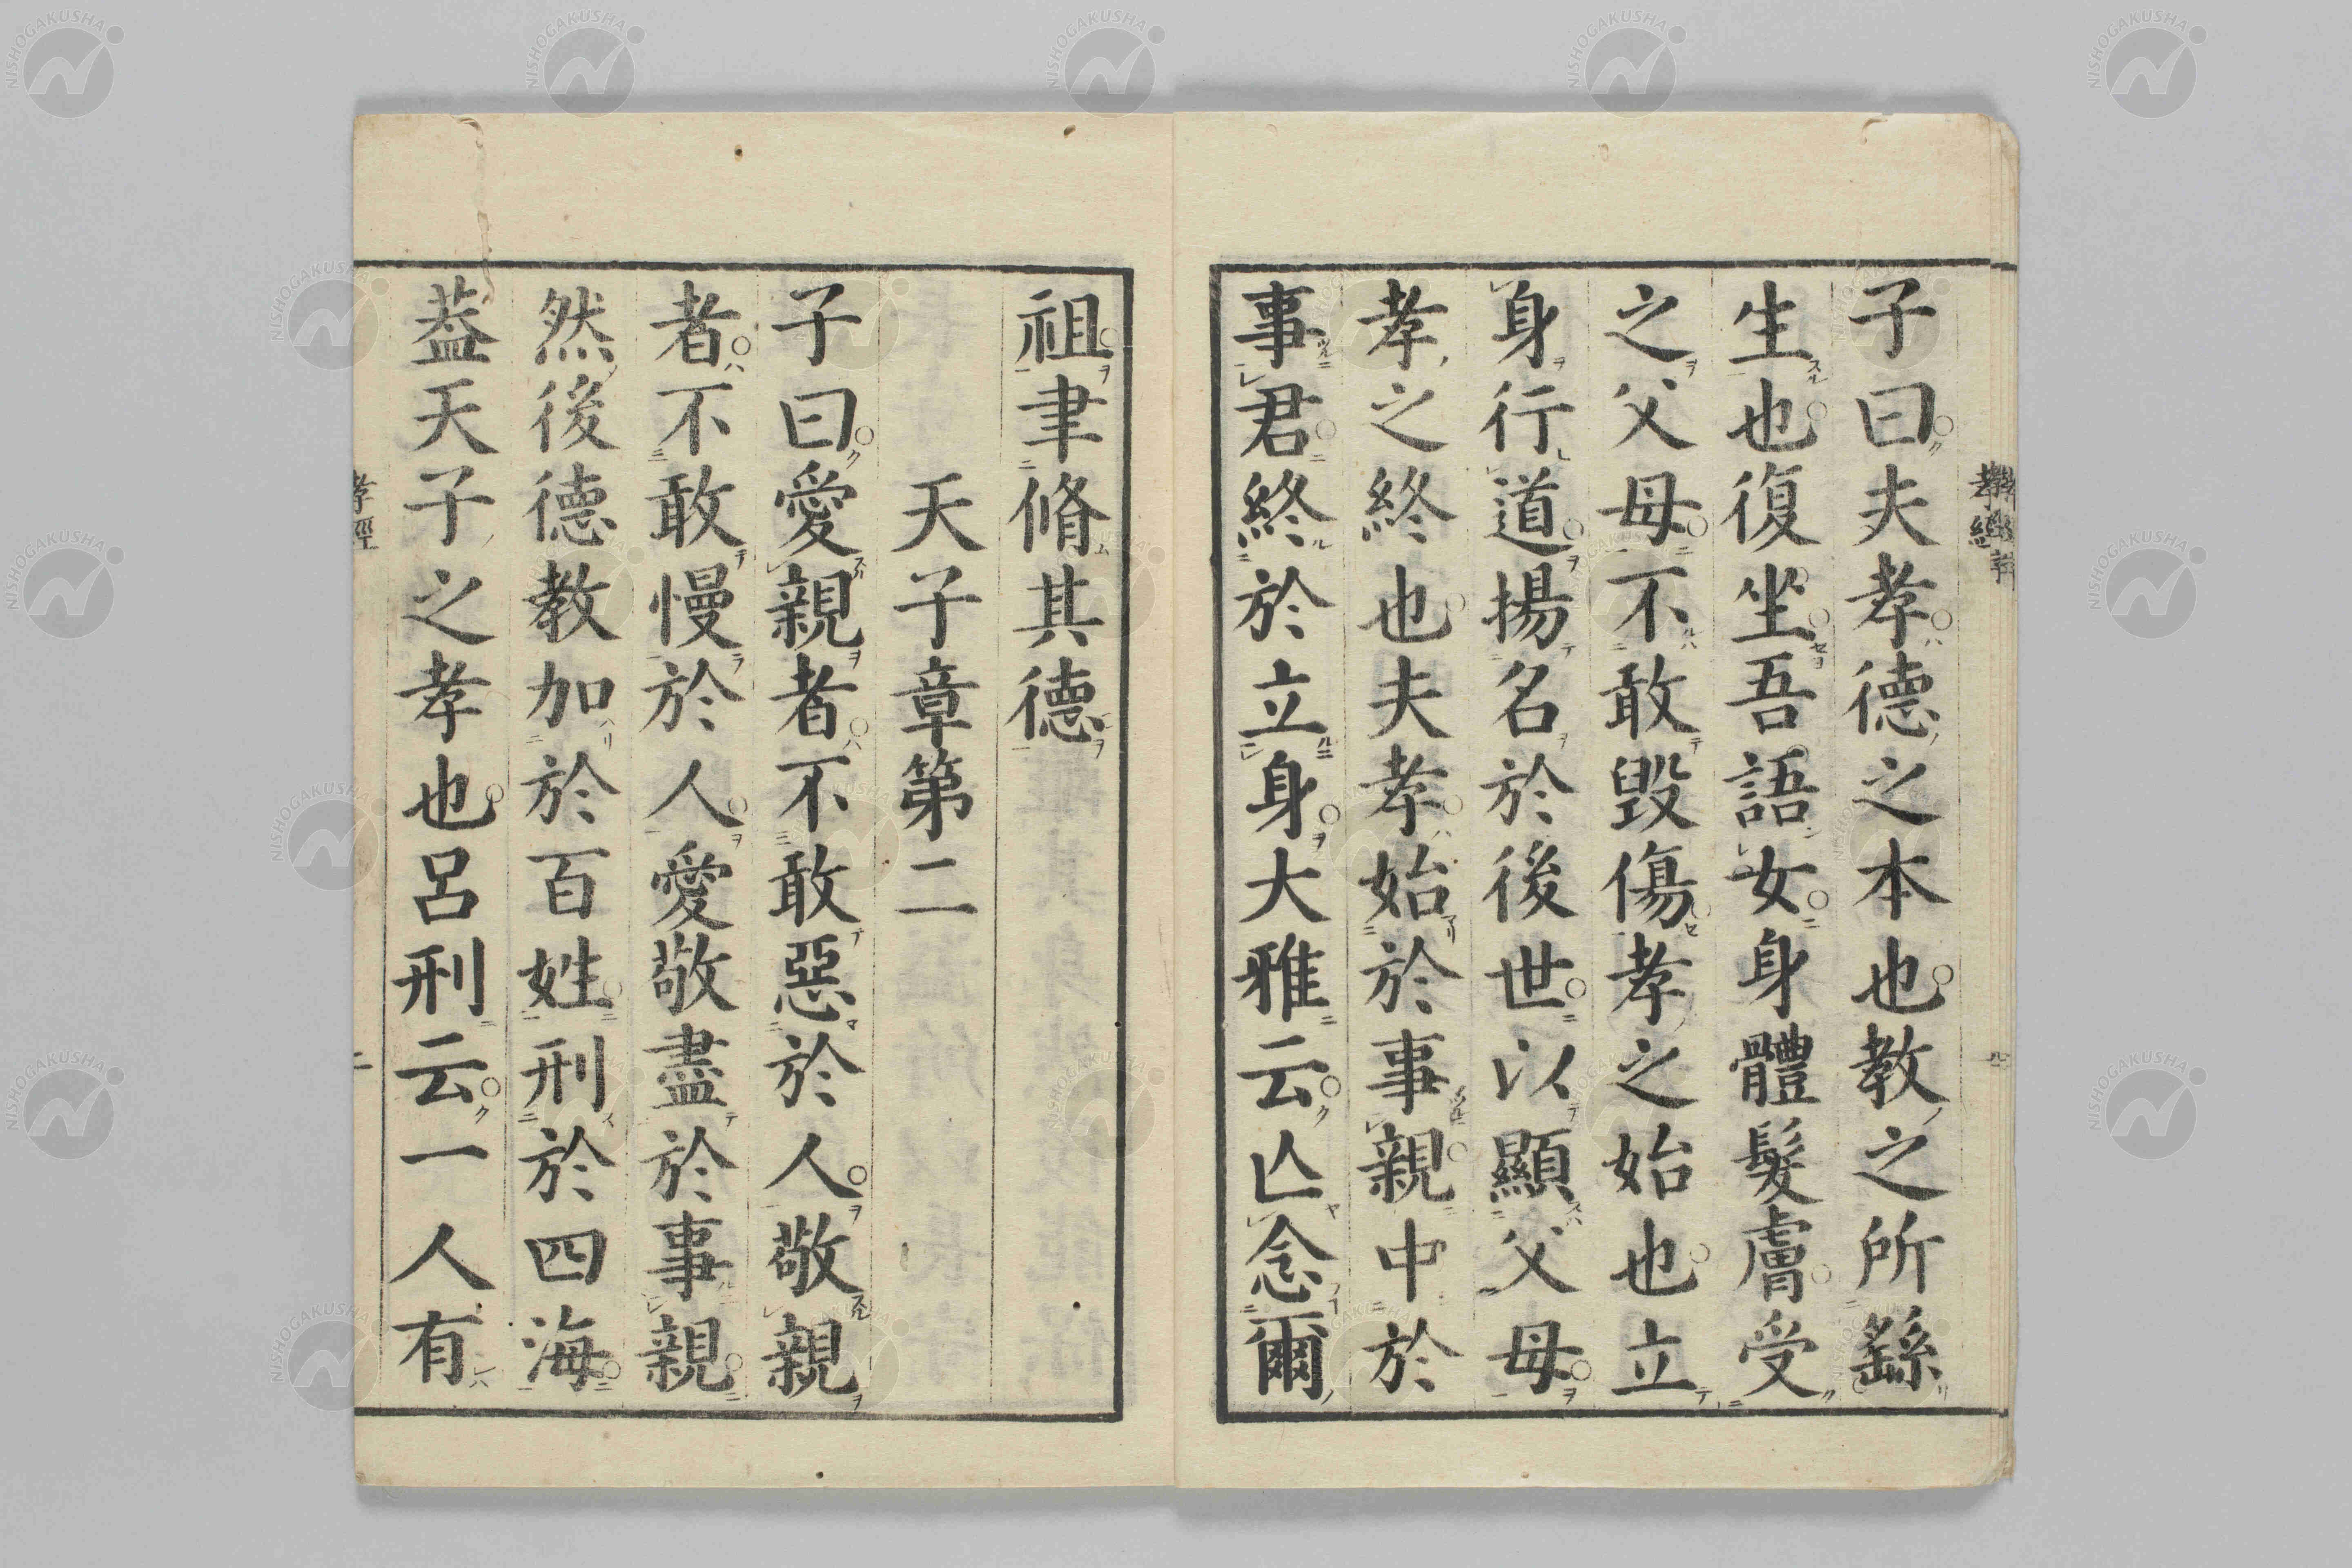 子曰夫孝德之本也教之所繇
生也復坐吾語女身體髮膚受
之父母不敢毀傷孝之始也立
身行道揚名於後世以顯父母
孝之終也夫孝始於事親中於
事君終於立身大雅云亾念爾
祖聿脩其德
天子章第二
子曰愛親者不敢惡於人敬親
者不敢慢於人愛敬盡於事親
然後德教加於百姓刑於四海
葢天子之孝也呂刑云一人有
孝經
二
NISHOGAKUSHA